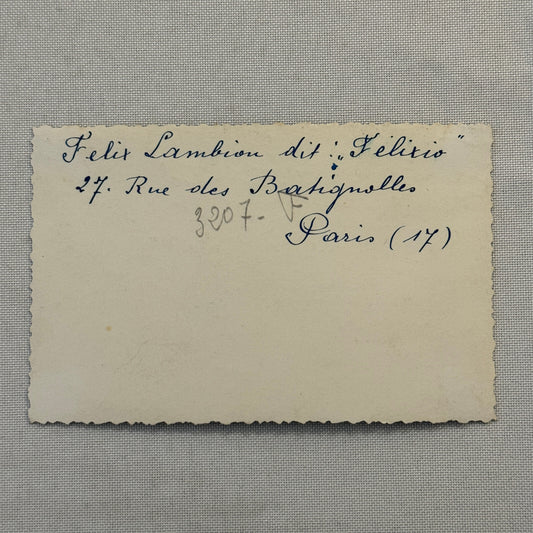 Felix Lambion dit : „Félixio"
27. Rue des Batignolles
3207- F
Paris (17)